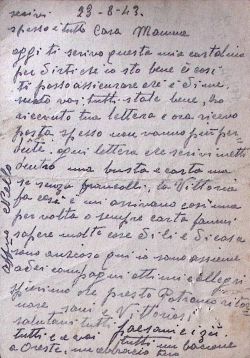 scrivi 23-8-43.
spesso e tutto Cara Mamma
oggi ti scrivo questa mia cartolina
per dirti che io sto bene e così
ti posso assicurare che è di me
voi tutti state bene, ho
ricevuto tua lettera e ora ricevo
posta spesso non vanno più per
ogni lettera che scrivi metti
dentro una busta e carta
se senza francobolli, la Vittoria
fa così e mi arrivano così una
per volta o sempre carta fammi
sapere molte cose di lì e di casa
sono ansioso qui io sono assieme
a dei compagni ottimi e allegri
speriamo che presto potremo ritor
nare sani e Vittoriosi
salutami tutti paesani e zii
tutti e a voi tutti un bacione
a Oreste, un abbraccio
Nello